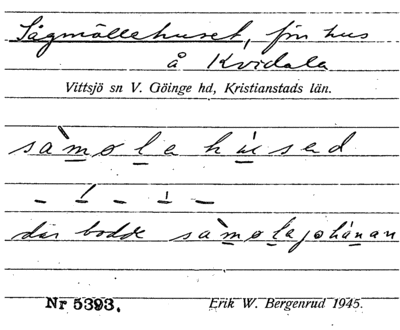 Sågmöllehuset, fm hus
å Kvidala
Vittsjö sn V. Göinge hd, Kristianstads län.
sàmola húsad
där bodde sàmolajohánan
Nr 5393. Erik W. Bergenrud 1945.